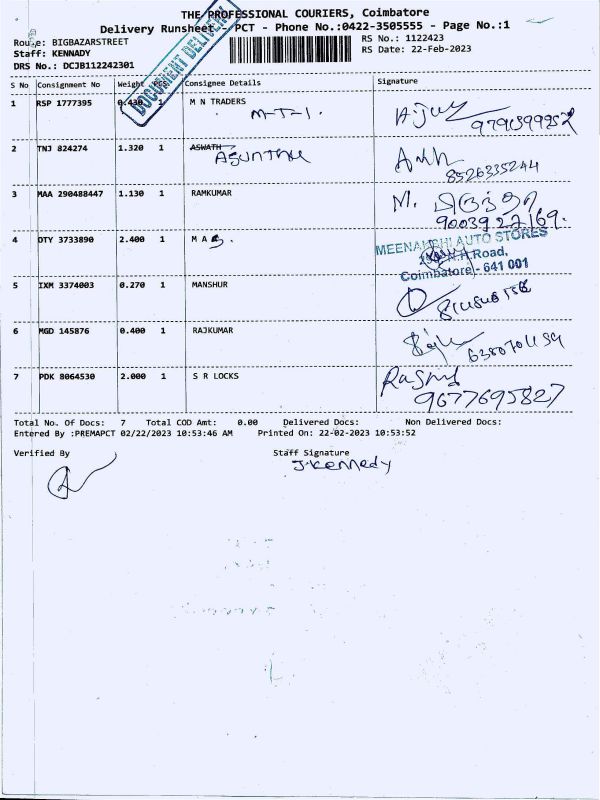 THE PROFESSIONAL COURIERS, Coimbatore
Delivery Runsheet - PCT - Phone No.:0422-3505555 - Page No.:1
Route: BIGBAZARSTREET
RS No.: 1122423
Staff: KENNADY
RS Date: 22-Feb-2023
DRS No.: DCJB112242301
DOCUMENT DELIVERY
S No Consignment No Weight PCS Consignee Details Signature
1 RSP 1777395 0.430 M N TRADERS
M-T-1.
2 TNJ 824274 1.320 1 ASWATH
8526335244
3 MAA 290488447 1.130 1 RAMKUMAR M.
9003922169.
4 DTY 3733890 2.400 1 M A
MEENAKSHI AUTO STORES
N.H.Road,
Coimbatore - 641 001
5 IXM 3374003 0.270 1 MANSHUR
6 MGD 145876 0.400 1 RAJKUMAR
7 PDK 8064530 2.000 1 S R LOCKS
9677695827
Total No. Of Docs: 7 Total COD Amt: 0.00 Delivered Docs: Non Delivered Docs:
Entered By :PREMAPCT 02/22/2023 10:53:46 AM Printed On: 22-02-2023 10:53:52
Verified By Staff Signature
J.Kennedy